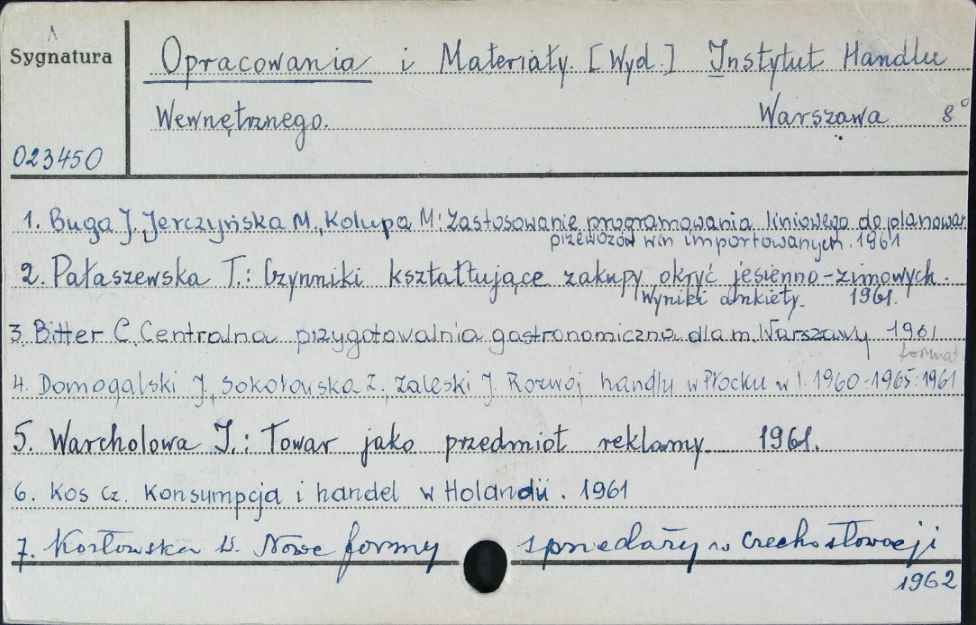 Sygnatura
Opracowania i Materiały. [Wyd.] Instytut Handlu
Wewnętrznego. Warszawa 8°
023450
1. Buga J., Jerczyńska M., Kolupa M: Zastosowanie programowania liniowego do planowan
przewozów win importowanych. 1961
2. Pałaszewska T.: Czynniki kształtujące zakupy okryć jesienno-zimowych.
Wyniki ankiety. 1961.
3. Bitter C. Centralna przygotowalnia gastronomiczna dla m. Warszawy 1961
format
4. Domogalski J., Sokołowska Z. Zaleski J. Rozwój handlu w Płocku w l. 1960-1965. 1961
5. Warcholowa I.: Towar jako przedmiot reklamy. 1961.
6. Kos Cz. Konsumpcja i handel w Holandii. 1961
7. Kozłowska W. Nowe formy sprzedaży w Czechosłowacji
1962